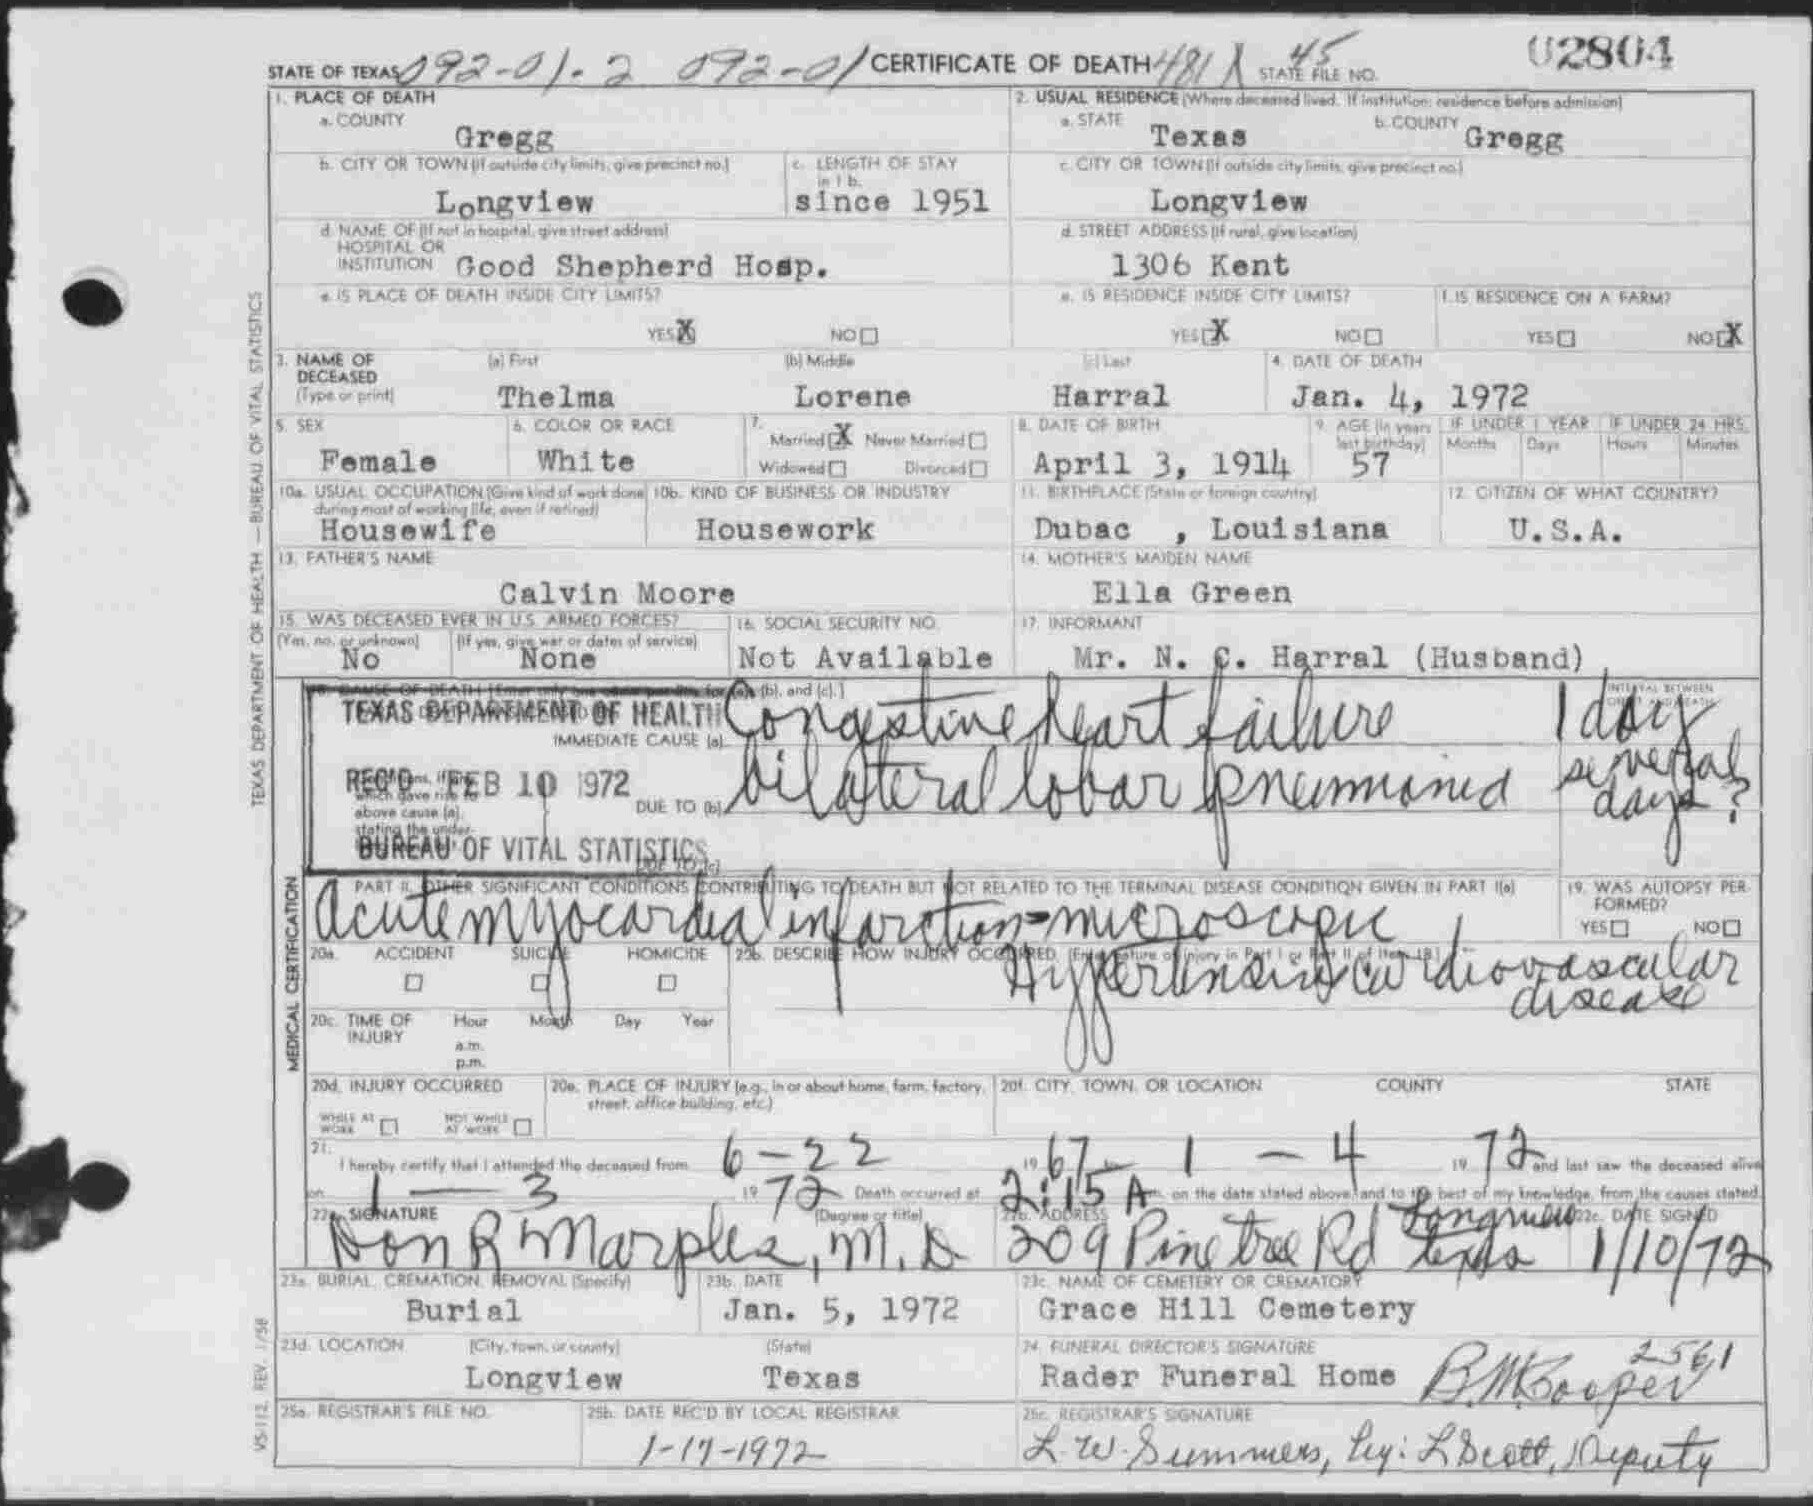 STATE OF TEXAS 092-01-2 092-01 CERTIFICATE OF DEATH 481X 45 STATE FILE NO. 02804
1. PLACE OF DEATH
a. COUNTY
Gregg
2. USUAL RESIDENCE (Where deceased lived. If institution: residence before admission)
a. STATE Texas b. COUNTY Gregg
b. CITY OR TOWN (If outside city limits, give precinct no.)
Longview
c. LENGTH OF STAY in 1 b.
since 1951
c. CITY OR TOWN (If outside city limits, give precinct no.)
Longview
d. NAME OF (If not in hospital, give street address)
HOSPITAL OR
INSTITUTION Good Shepherd Hosp.
d. STREET ADDRESS (If rural, give location)
1306 Kent
e. IS PLACE OF DEATH INSIDE CITY LIMITS?
YES X NO
e. IS RESIDENCE INSIDE CITY LIMITS?
YES X NO
f. IS RESIDENCE ON A FARM?
YES NO X
3. NAME OF DECEASED (Type or print)
(a) First (b) Middle (c) Last
Thelma Lorene Harral
4. DATE OF DEATH
Jan. 4, 1972
5. SEX
Female
6. COLOR OR RACE
White
7. Married X Never Married
Widowed Divorced
8. DATE OF BIRTH
April 3, 1914
9. AGE (In years last birthday)
57
IF UNDER 1 YEAR IF UNDER 24 HRS.
Months Days Hours Minutes
10a. USUAL OCCUPATION (Give kind of work done during most of working life, even if retired)
Housewife
10b. KIND OF BUSINESS OR INDUSTRY
Housework
11. BIRTHPLACE (State or foreign country)
Dubac , Louisiana
12. CITIZEN OF WHAT COUNTRY?
U.S.A.
13. FATHER'S NAME
Calvin Moore
14. MOTHER'S MAIDEN NAME
Ella Green
15. WAS DECEASED EVER IN U.S. ARMED FORCES?
(Yes, no, or unknown) (If yes, give war or dates of service)
No None
16. SOCIAL SECURITY NO.
Not Available
17. INFORMANT
Mr. N. C. Harral (Husband)
18. CAUSE OF DEATH (Enter only one cause per line for (a), (b), and (c).)
INTERVAL BETWEEN
TEXAS DEPARTMENT OF HEALTH
IMMEDIATE CAUSE (a) Congestive heart failure 1 day
REC'D FEB 10 1972
which gave rise to
above cause (a),
stating the under-
DUE TO (b) bilateral lobar pneumonia several days?
BUREAU OF VITAL STATISTICS
DUE TO (c)
PART II. OTHER SIGNIFICANT CONDITIONS CONTRIBUTING TO DEATH BUT NOT RELATED TO THE TERMINAL DISEASE CONDITION GIVEN IN PART I(a)
Acute myocardial infarction - microscopic
Hypertensive cardiovascular
disease
19. WAS AUTOPSY PERFORMED?
YES NO
20a. ACCIDENT SUICIDE HOMICIDE
20b. DESCRIBE HOW INJURY OCCURRED. (Enter nature of injury in Part I or Part II of item 18.)
20c. TIME OF INJURY Hour Month Day Year
a.m.
p.m.
20d. INJURY OCCURRED
WHILE AT WORK NOT WHILE AT WORK
20e. PLACE OF INJURY (e.g., in or about home, farm, factory, street, office building, etc.)
20f. CITY, TOWN, OR LOCATION COUNTY STATE
21. I hereby certify that I attended the deceased from 6-22 1967 to 1-4 1972 and last saw the deceased alive
on 1-3 1972 Death occurred at 2:15 A m. on the date stated above, and to the best of my knowledge, from the causes stated.
22a. SIGNATURE (Degree or title)
Don R Marples, M.D.
22b. ADDRESS
209 Pine tree Rd Longview Texas
22c. DATE SIGNED
1/10/72
23a. BURIAL, CREMATION, REMOVAL (Specify)
Burial
23b. DATE
Jan. 5, 1972
23c. NAME OF CEMETERY OR CREMATORY
Grace Hill Cemetery
23d. LOCATION (City, town, or county) (State)
Longview Texas
24. FUNERAL DIRECTOR'S SIGNATURE
Rader Funeral Home B.M. Cooper 2561
25a. REGISTRAR'S FILE NO.
25b. DATE REC'D BY LOCAL REGISTRAR
1-17-1972
25c. REGISTRAR'S SIGNATURE
L. W. Summers, by: L Scott, Deputy
TEXAS DEPARTMENT OF HEALTH — BUREAU OF VITAL STATISTICS
MEDICAL CERTIFICATION
VS-112, REV. 1/58